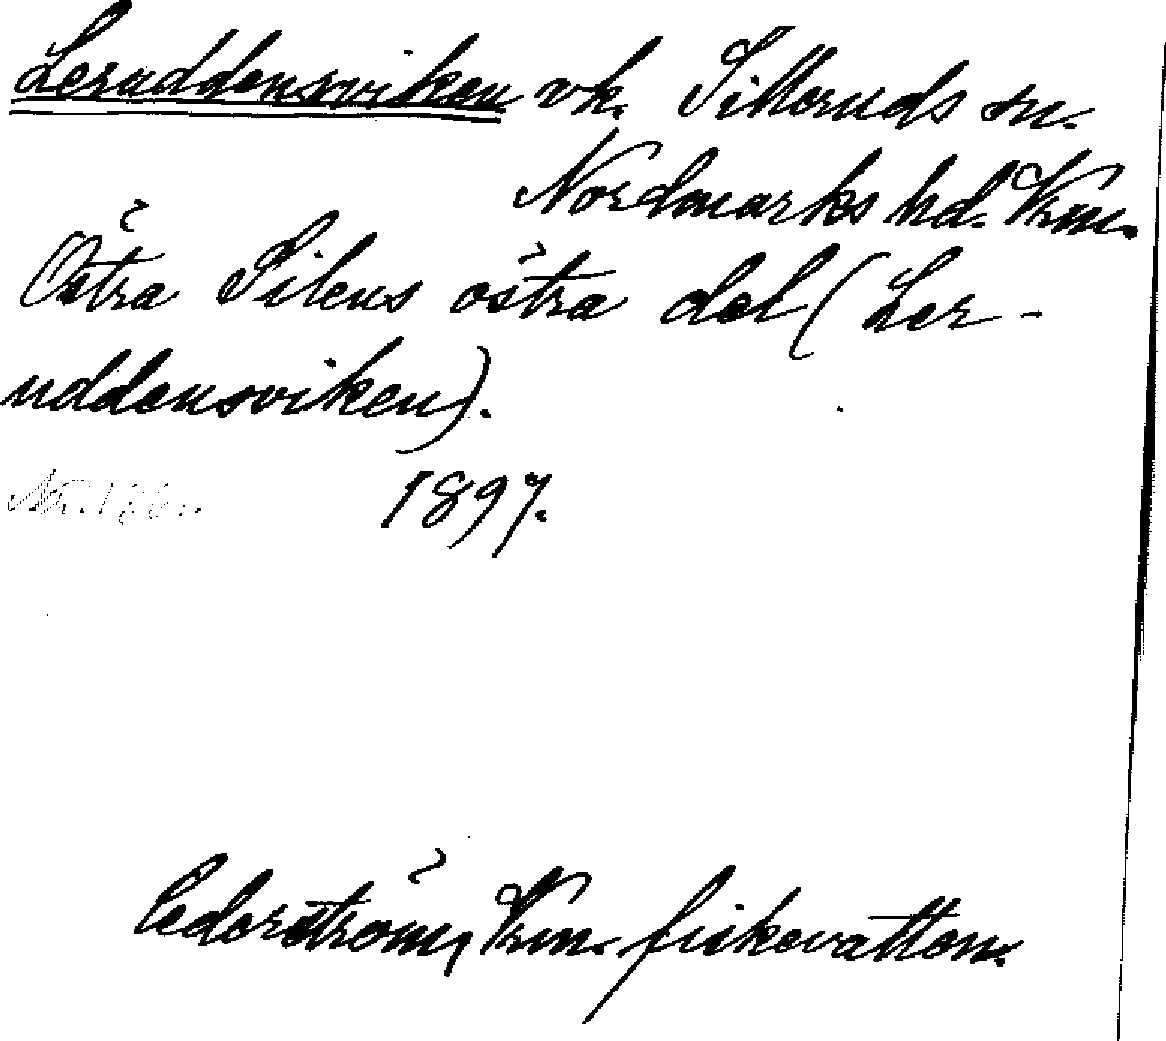 Leruddensviken vk. Silleruds sn.
Nordmarks hd. Vrm.
Östra Silens östra del (Ler-
uddensviken).
1897.
Cederström, Vrm. fiskevatten.